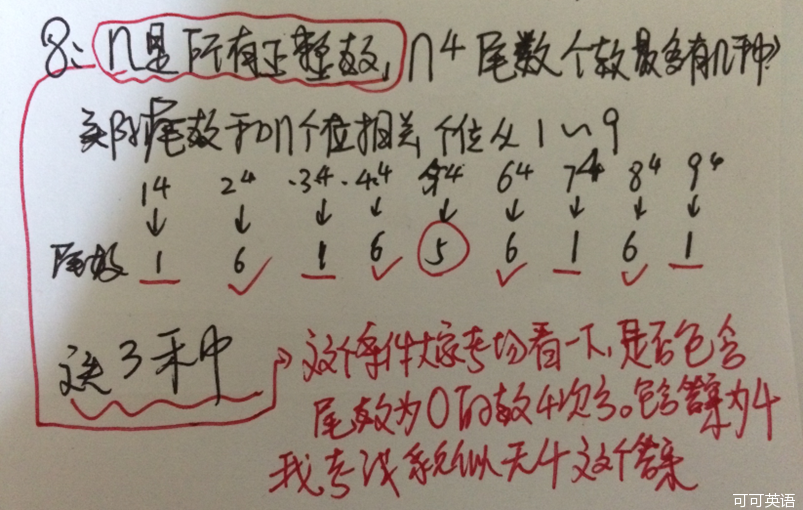 8: n是所有正整数, n4 尾数个数最多有几种?
实际尾数于n个位相关, 个位从1~9
14 24 34 44 54 64 74 84 94
↓ ↓ ↓ ↓ ↓ ↓ ↓ ↓ ↓
尾数 1 6 1 6 5 6 1 6 1
选3种
这个条件大家考场看一下, 是否包含
尾数为0的数4次方。包含答案为4
我考试貌似无4这个答案
可可英语